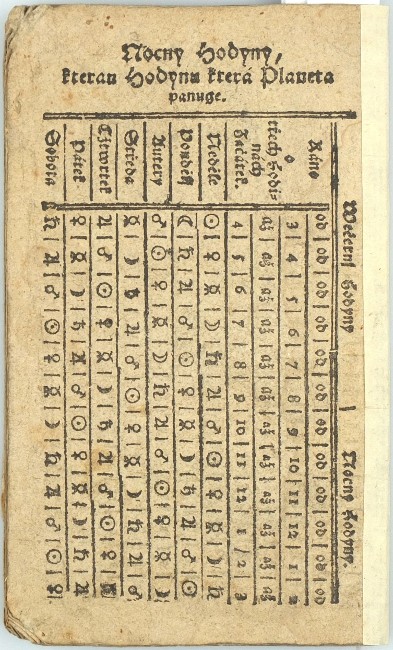 Nocny Hodyny,
kterau Hodynu která Planeta
panuge.
Wečerni Hodyny | Nocne Hodyny.
Ráno od | od | od | od | od | od | od | od | od | od | od | od
o 3 | 4 | 5 | 6 | 7 | 8 | 9 | 10 | 11 | 12 | 1 | 2
třech Hodi- až | až | až | až | až | až | až | až | až | až | až | až
nách
Začátek. 4 | 5 | 6 | 7 | 8 | 9 | 10 | 11 | 12 | 1 | 2 | 3
Neděle ☉ | ♀ | ☿ | ☽ | ♄ | ♃ | ♂ | ☉ | ♀ | ☿ | ☽ | ♄
Ponděli ☾ | ♄ | ♃ | ♂ | ☉ | ♀ | ☿ | ☽ | ♄ | ♃ | ♂ | ☉
Autery ♂ | ☉ | ♀ | ☿ | ☽ | ♄ | ♃ | ♂ | ☉ | ♀ | ☿ | ☽
Středa ☿ | ☽ | ♄ | ♃ | ♂ | ☉ | ♀ | ☿ | ☽ | ♄ | ♃ | ♂
Čtwrtek ♃ | ♂ | ☉ | ♀ | ☿ | ☽ | ♄ | ♃ | ♂ | ☉ | ♀ | ☿
Pátek ♀ | ☿ | ☽ | ♄ | ♃ | ♂ | ☉ | ♀ | ☿ | ☽ | ♄ | ♃
Sobota ♄ | ♃ | ♂ | ☉ | ♀ | ☿ | ☽ | ♄ | ♃ | ♂ | ☉ | ♀